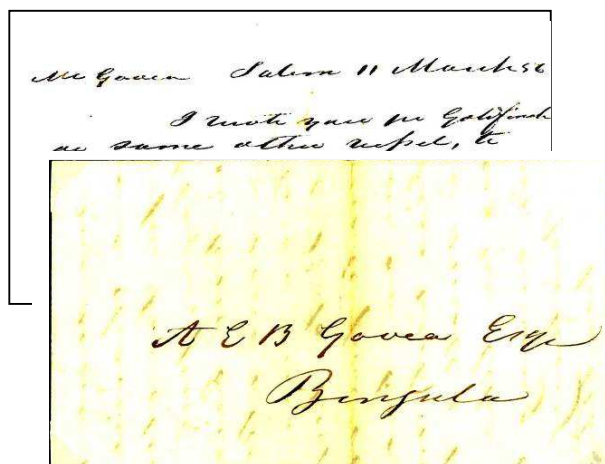 Mr Govea Salem 11 March 56
I wrote you per Goldfinch
or some other vessel, to
A E B Govea Esqr
Benguela